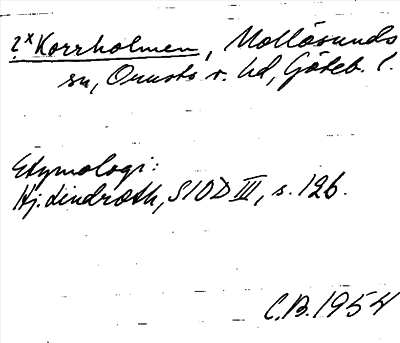 2 ˣKorrholmen, Mollösunds
sn, Orusts v. hd, Göteb. l.
Etymologi:
Hj. Lindroth, SIOD III, s. 126.
C.B. 1954